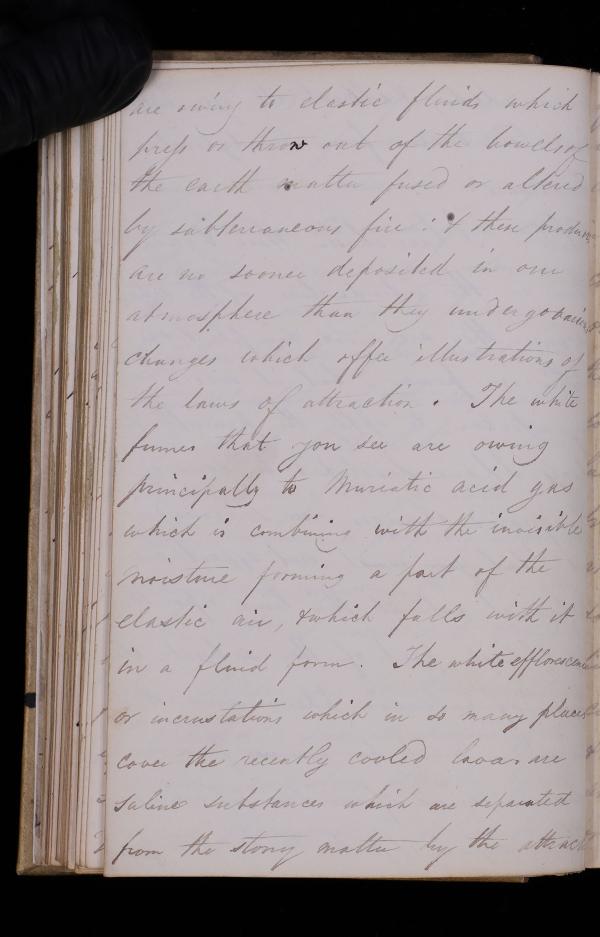 are owing to elastic fluids which
press or throw out of the bowels of
the earth matter fused or altered
by subterraneous fire : & these
are no sooner deposited in our
atmosphere than they undergo
changes which offer illustrations of
the laws of attraction . The white
fumes that you see are owing
principally to Muriatic acid gas
which is combining with the invisible
moisture forming a part of the
elastic air, & which falls with it
in a fluid form . The white
or incrustations which in so many places
cover the recently cooled lavas are
saline substances which are separated
from the stony matter by the